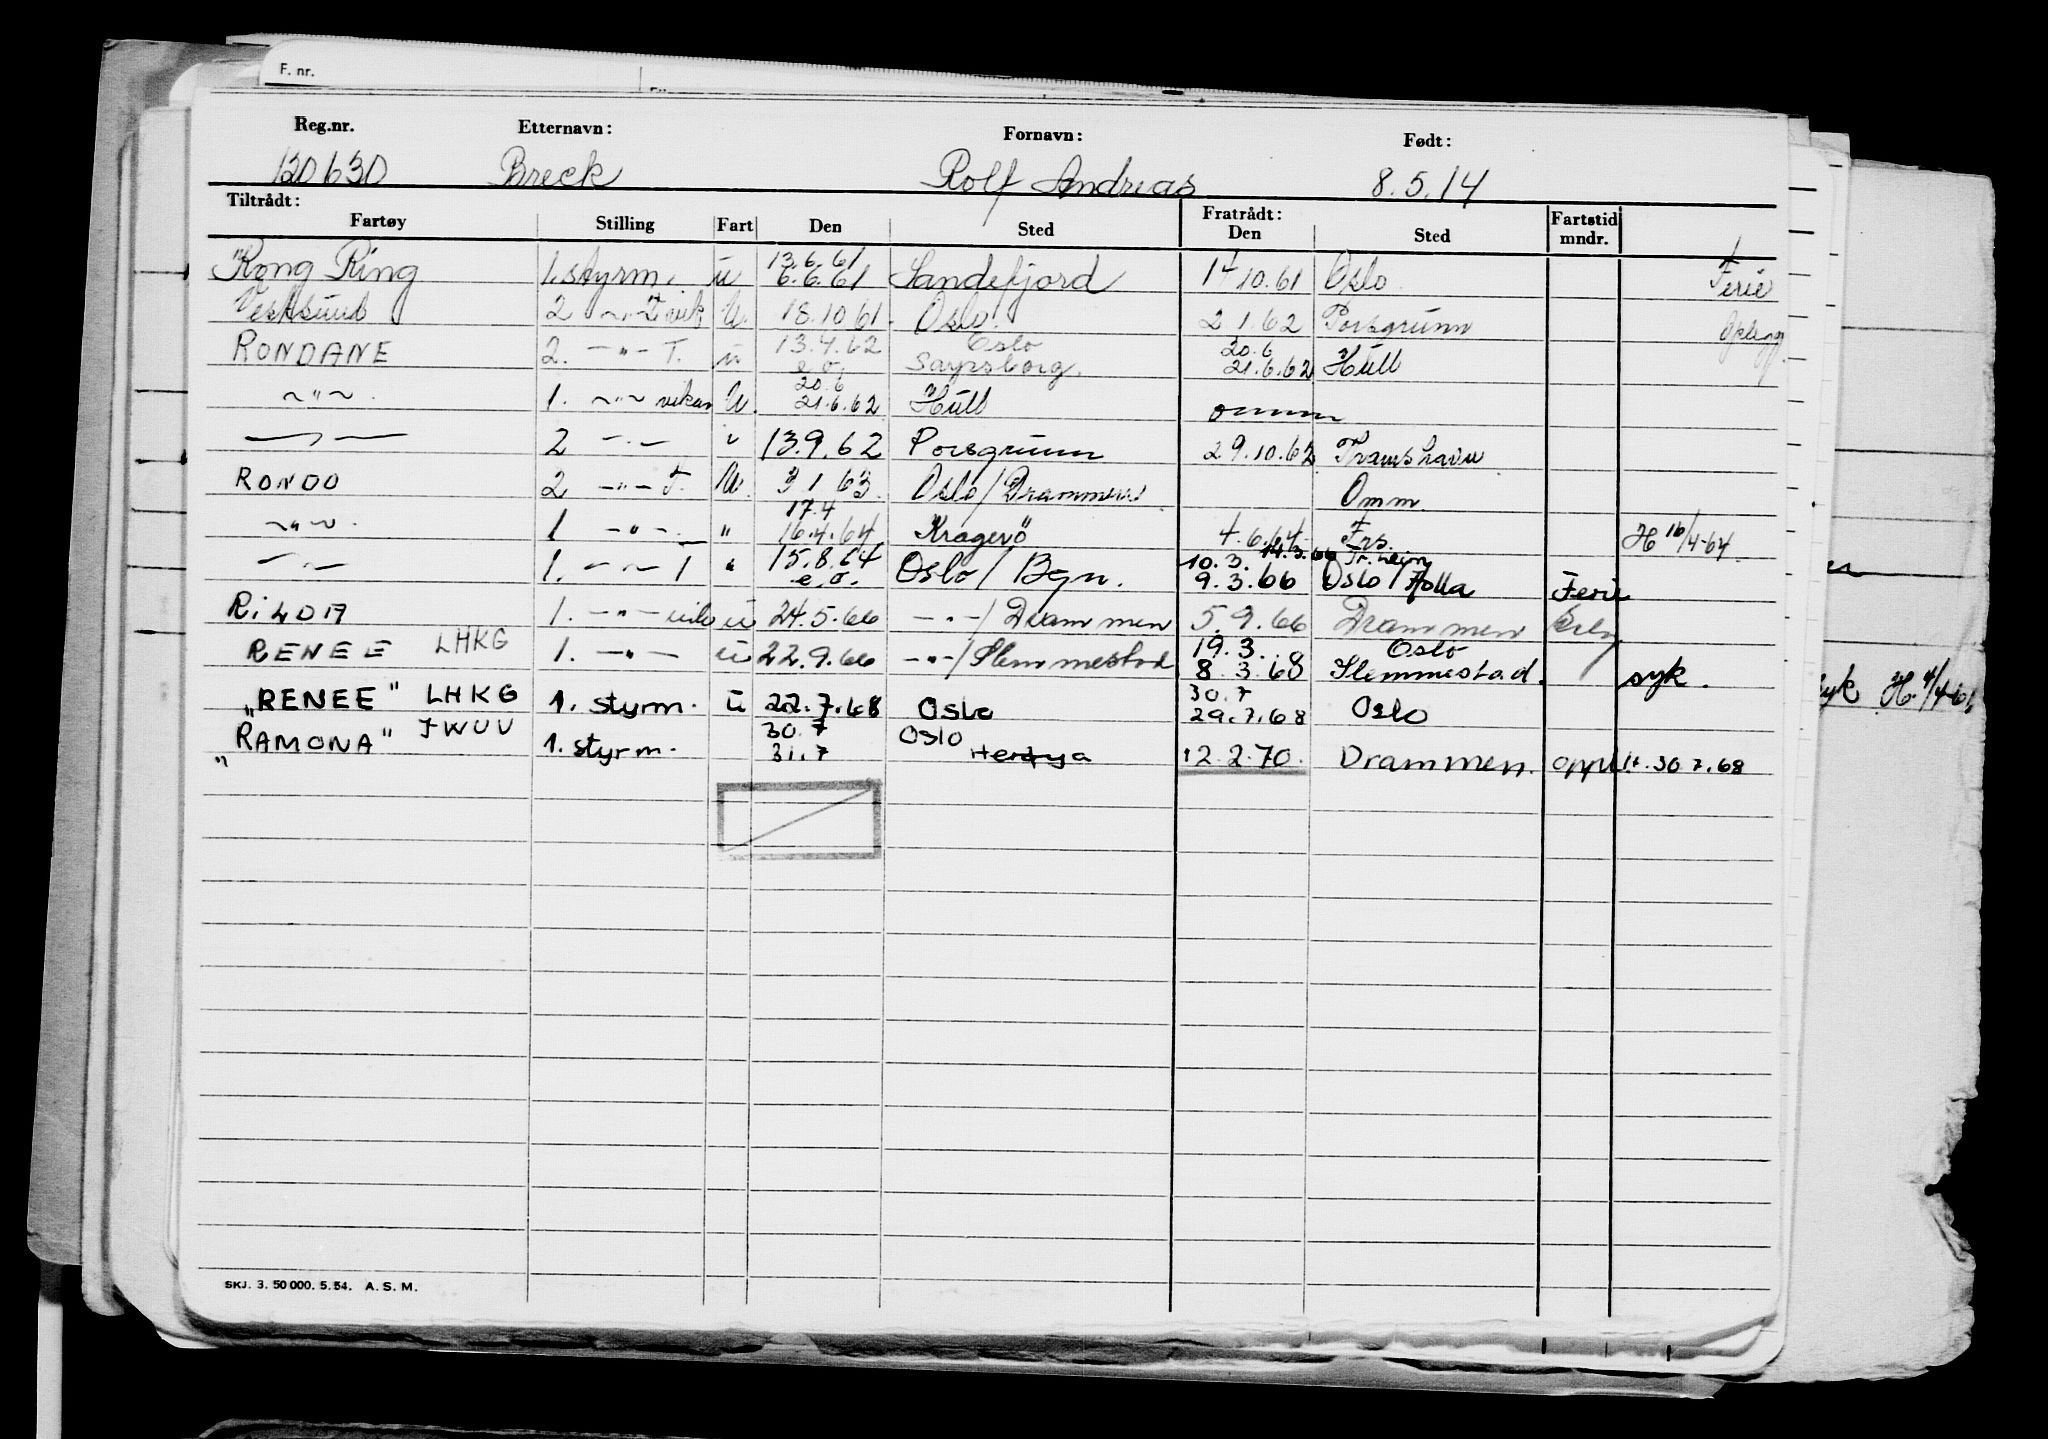 F. nr.
Reg.nr. Etternavn: Fornavn: Født:
120630 Breck Rolf Andreas 8.5.14
Tiltrådt: Fratrådt:
Fartøy Stilling Fart Den Sted Den Sted Fartstid mndr.
13.6.61
Kong Ring 1. styrm. u 6.6.61 Sandefjord 14 10.61 Oslo Ferie
Vestsund 2 -"- T vik U. 18.10 61. Oslo. 2 1.62 Porsgrunn Oplegg
13.4.62 Oslo 20.6
RONDANE 2. -"- T. u e.o. 21.6.62 Hull
20.6
-"- 1. -"- vikar U. 21.6.62 Hull omm
-"- 2 -"- " 13.9.62 Porsgrunn 29.10.62
RONDO 2 -"- T. U. 3 1 63. Oslo / Drammen Omm
17.4
-"- 1 -"- " 16.4.64 Kragerö 4.6.64 Frs. H 16/4-64
15.8.64 10.3. 14.3.66 Tr.heim
-"- 1. -"- " e.o. Oslo / Bgn. 9.3.66 Oslo / Holla Ferie
RILDA 1. -"- u 24.5.66 -"- / Drammen 5.9.66 Drammen
19.3. Oslo
RENEE LHKG 1. -"- u 22.9.66 -"- / Slemmestad 8.3.68 Slemmestad. syk.
30.7
"RENEE" LHKG 1. styrm. u 22.7.68 Oslo 29.7.68 Oslo
30.7 Oslo
"RAMONA" JWUV 1. styrm. 31.7 Herøya 12.2.70. Drammen. oppl. H. 30.7.68
syk H. 4/4-61
SKJ. 3. 50 000. 5.54. A. S. M.